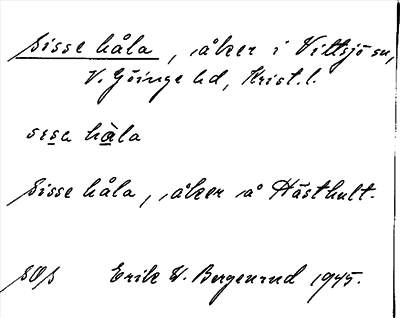 Sisse håla, åker i Vittsjö sn,
V. Göinge hd, Krist. l.
sesa håla
Sisse håla, åker å Hästhult.
SOS Erik W. Bergenrud 1945.